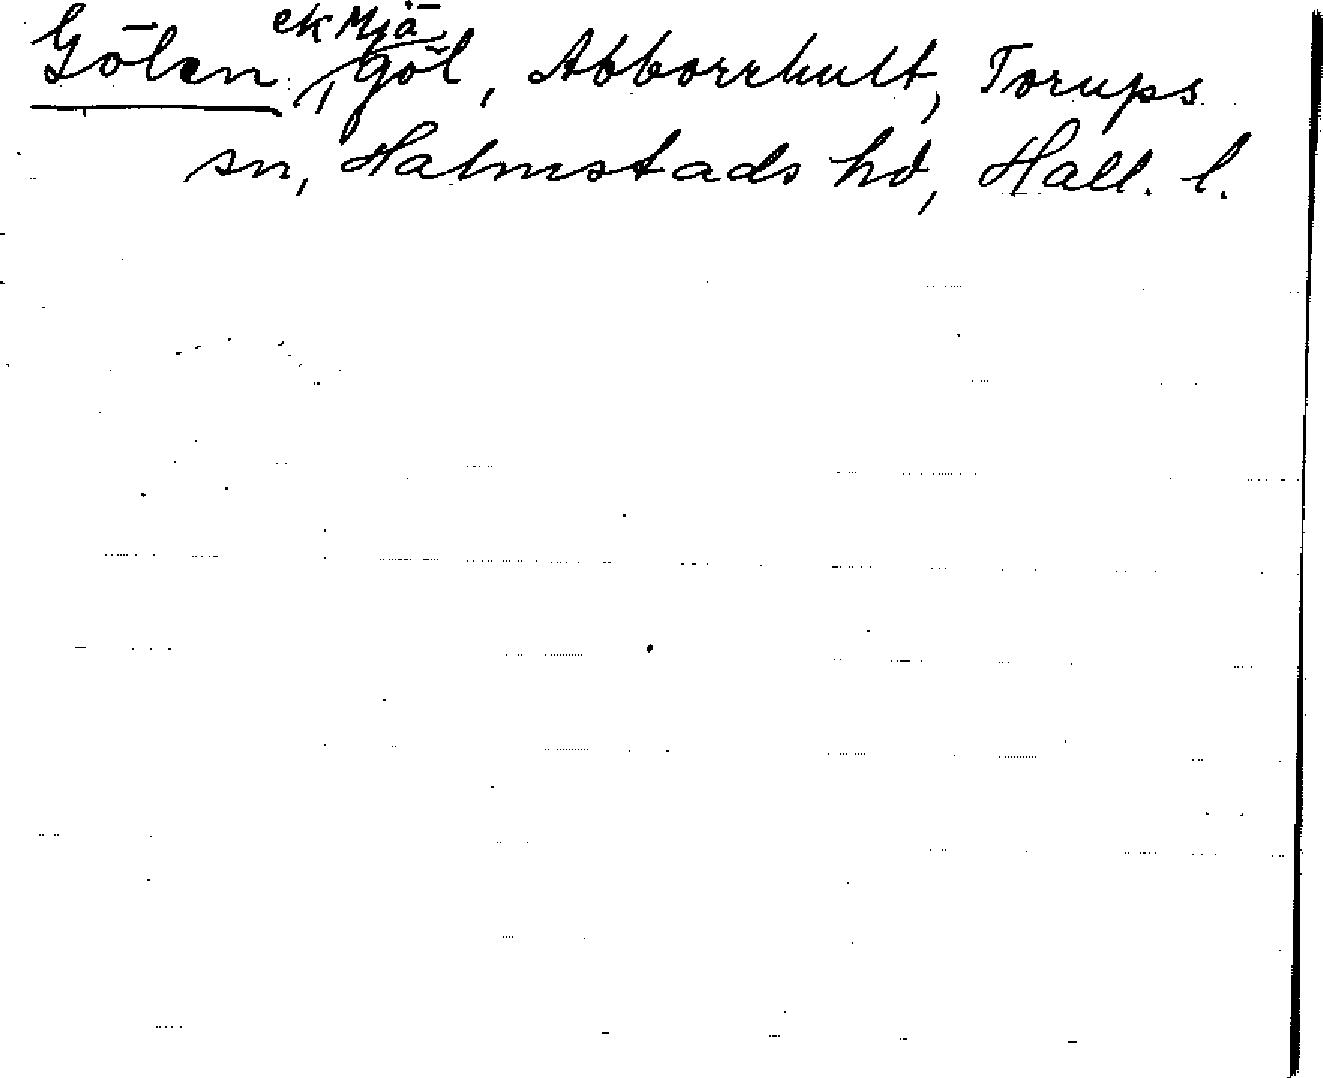 Gölen, ek Mjä göl, Abborrhult, Torups
sn, Halmstads hd, Hall. l.